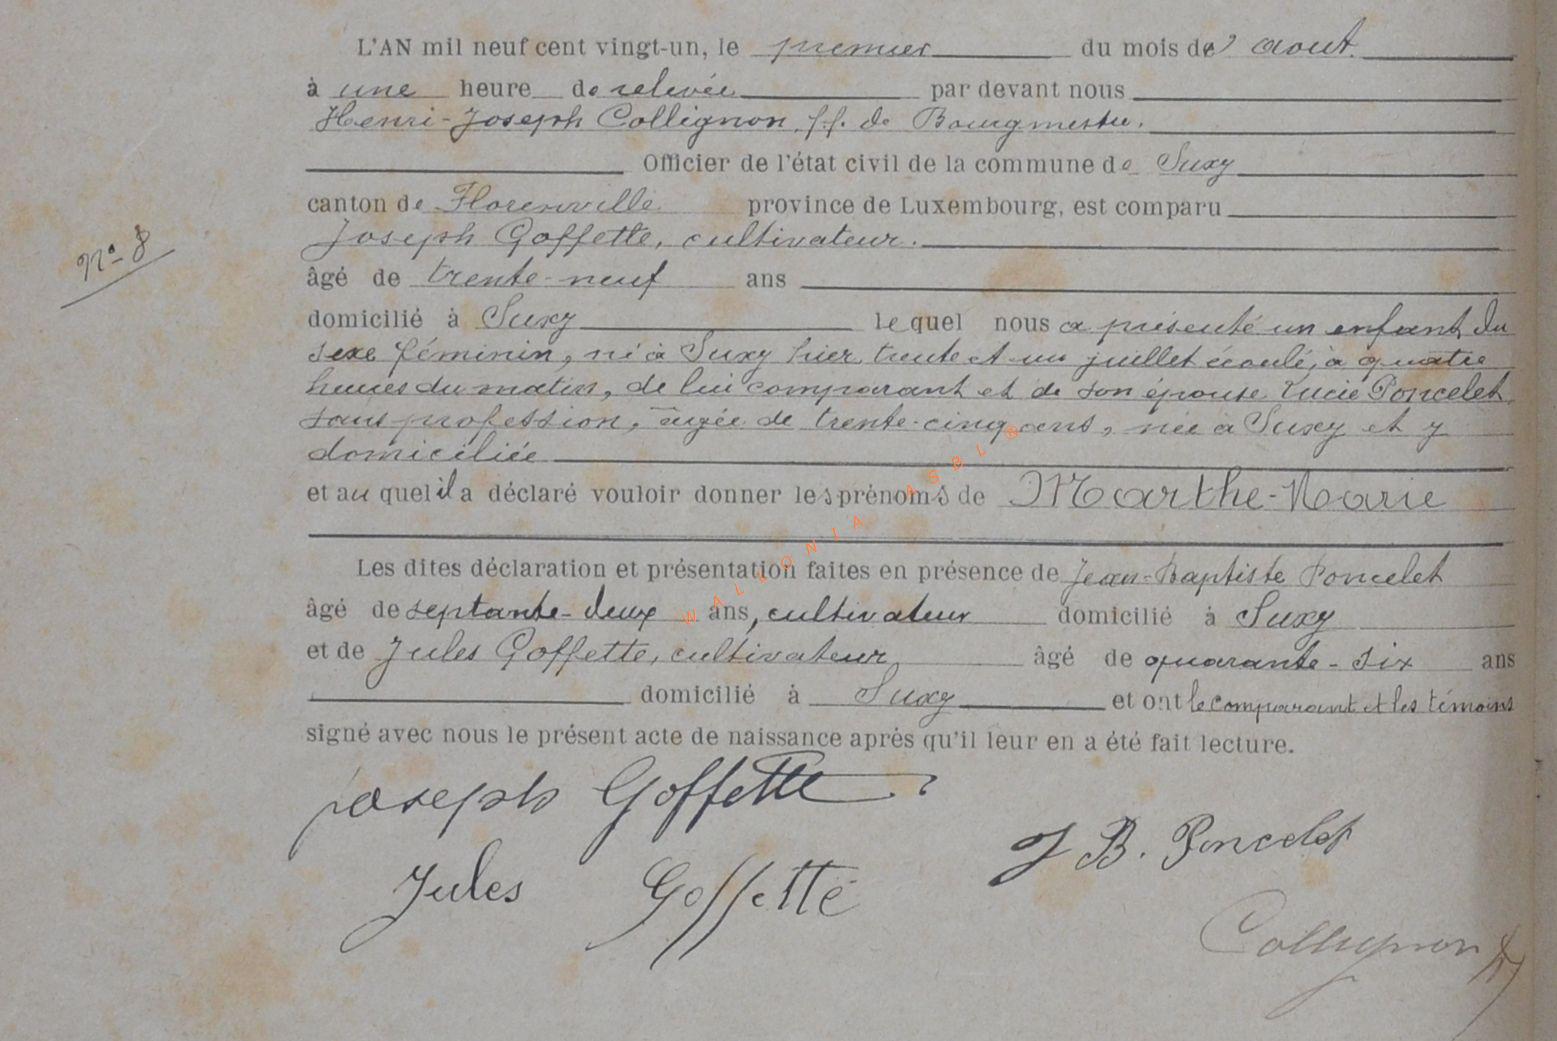 L'AN mil neuf cent vingt-un, le premier du mois d' aout.
à une heure de relevée par devant nous
Henri-Joseph Collignon, ff. de Bourgmestre.
Officier de l'état civil de la commune de Suxy
canton de Florenville province de Luxembourg, est comparu
Joseph Goffette, cultivateur.
N° 8
âgé de trente-neuf ans
domicilié à Suxy lequel nous a présenté un enfant du
sexe féminin, né à Suxy hier, trente et un juillet écoulé, à quatre
heures du matin, de lui comparant et de son épouse Lucie Poncelet,
sans profession, âgée de trente-cinq ans, née à Suxy et y
domiciliée
et auquel il a déclaré vouloir donner les prénoms de Marthe-Marie
WALLONIA ASBL ©
Les dites déclaration et présentation faites en présence de Jean-Baptiste Poncelet
âgé de septante-deux ans, cultivateur domicilié à Suxy
et de Jules Goffette, cultivateur âgé de quarante-six ans
domicilié à Suxy et ont le comparant et les témoins
signé avec nous le présent acte de naissance après qu'il leur en a été fait lecture.
Joseph Goffette
J B. Poncelet
Jules Goffette
Collignon